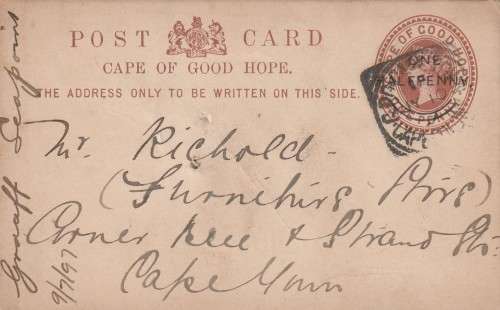 POST CARD
CAPE OF GOOD HOPE.
THE ADDRESS ONLY TO BE WRITTEN ON THIS SIDE.
CAPE OF GOOD HOPE
ONE
HALFPENNY
Mr. Richold -
(Furnishing
Corner & Strand Sts.
Cape Town
Graaff Seapoint
9/7/97